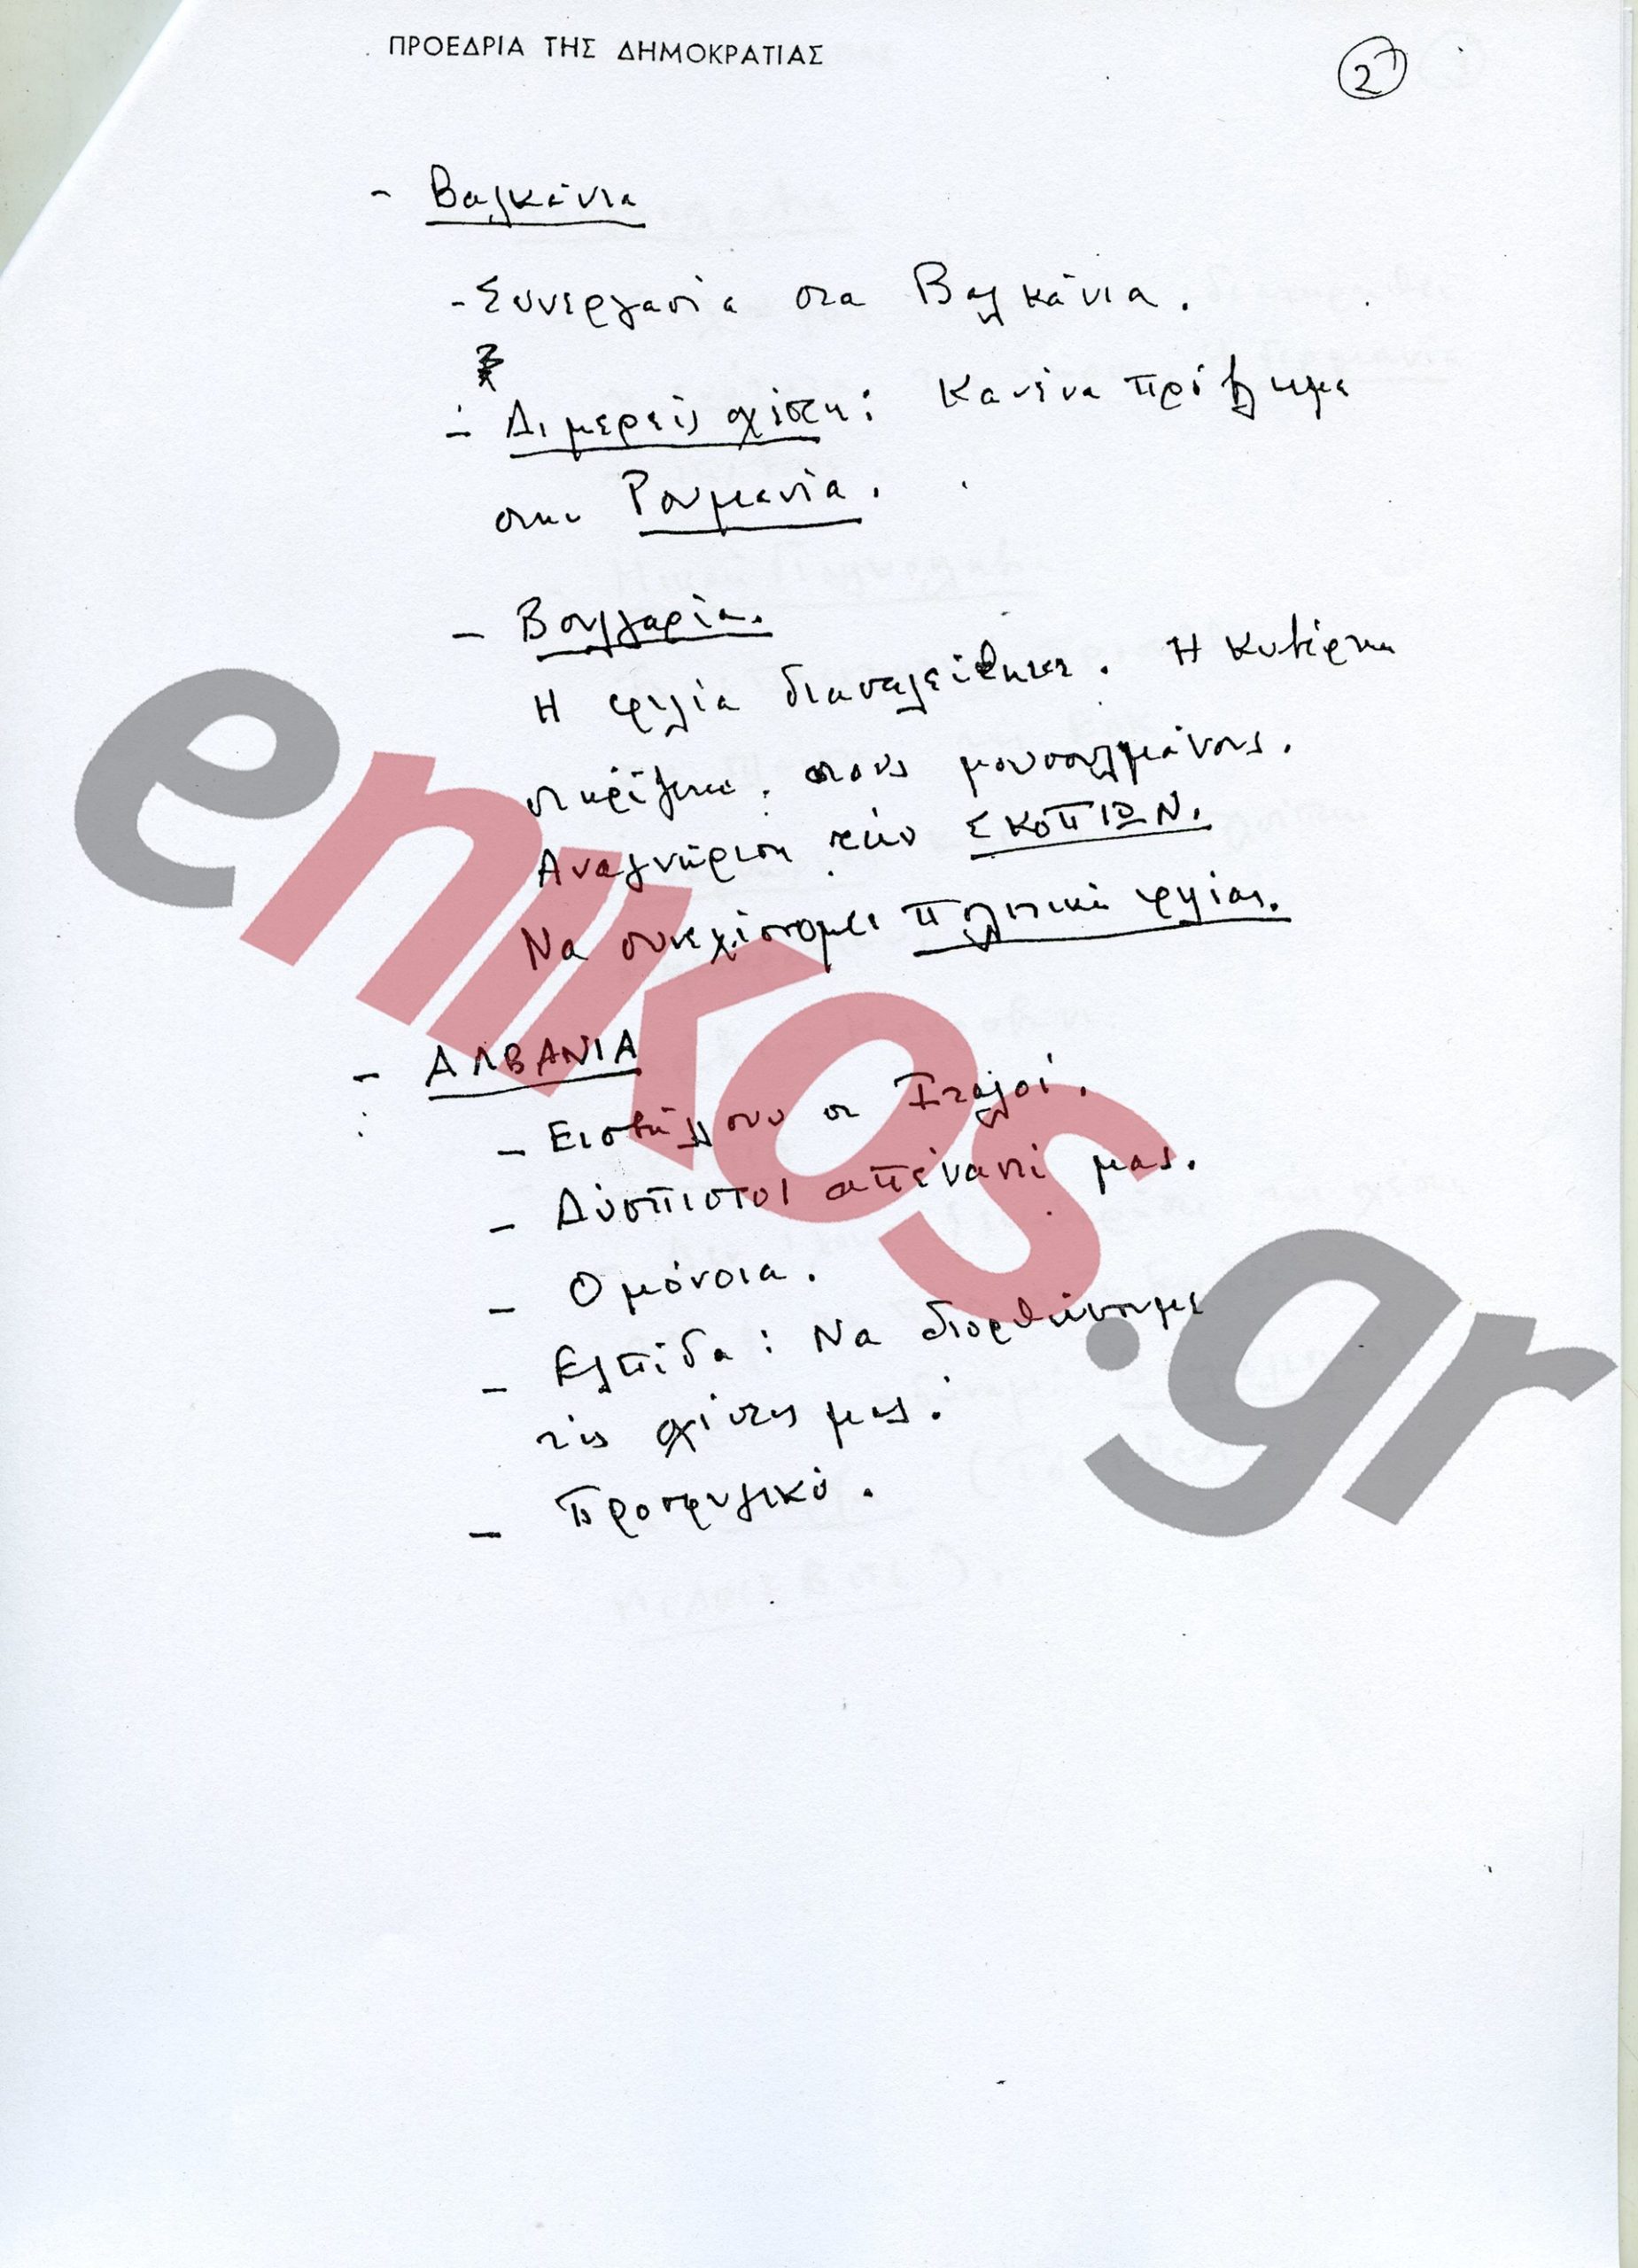 ΠΡΟΕΔΡΙΑ ΤΗΣ ΔΗΜΟΚΡΑΤΙΑΣ
2
- Βαλκάνια
- Συνεργασία στα Βαλκάνια.
- Διμερείς σχέσεις: Κανένα πρόβλημα
στην Ρουμανία.
- Βουλγαρία.
Η φιλία διασαλεύθηκε. Η Κυβέρνηση
στηρίζεται στους μουσουλμάνους.
Αναγνώριση των ΣΚΟΠΙΩΝ.
Να συνεχίσουμε πολιτική φιλίας.
- ΑΛΒΑΝΙΑ
- Εισβάλλουν οι Ιταλοί.
- Δύσπιστοι απέναντί μας.
- Ομόνοια.
- Ελπίδα: Να διορθώσουμε
τις σχέσεις μας.
- Προσφυγικό.
enikos.gr